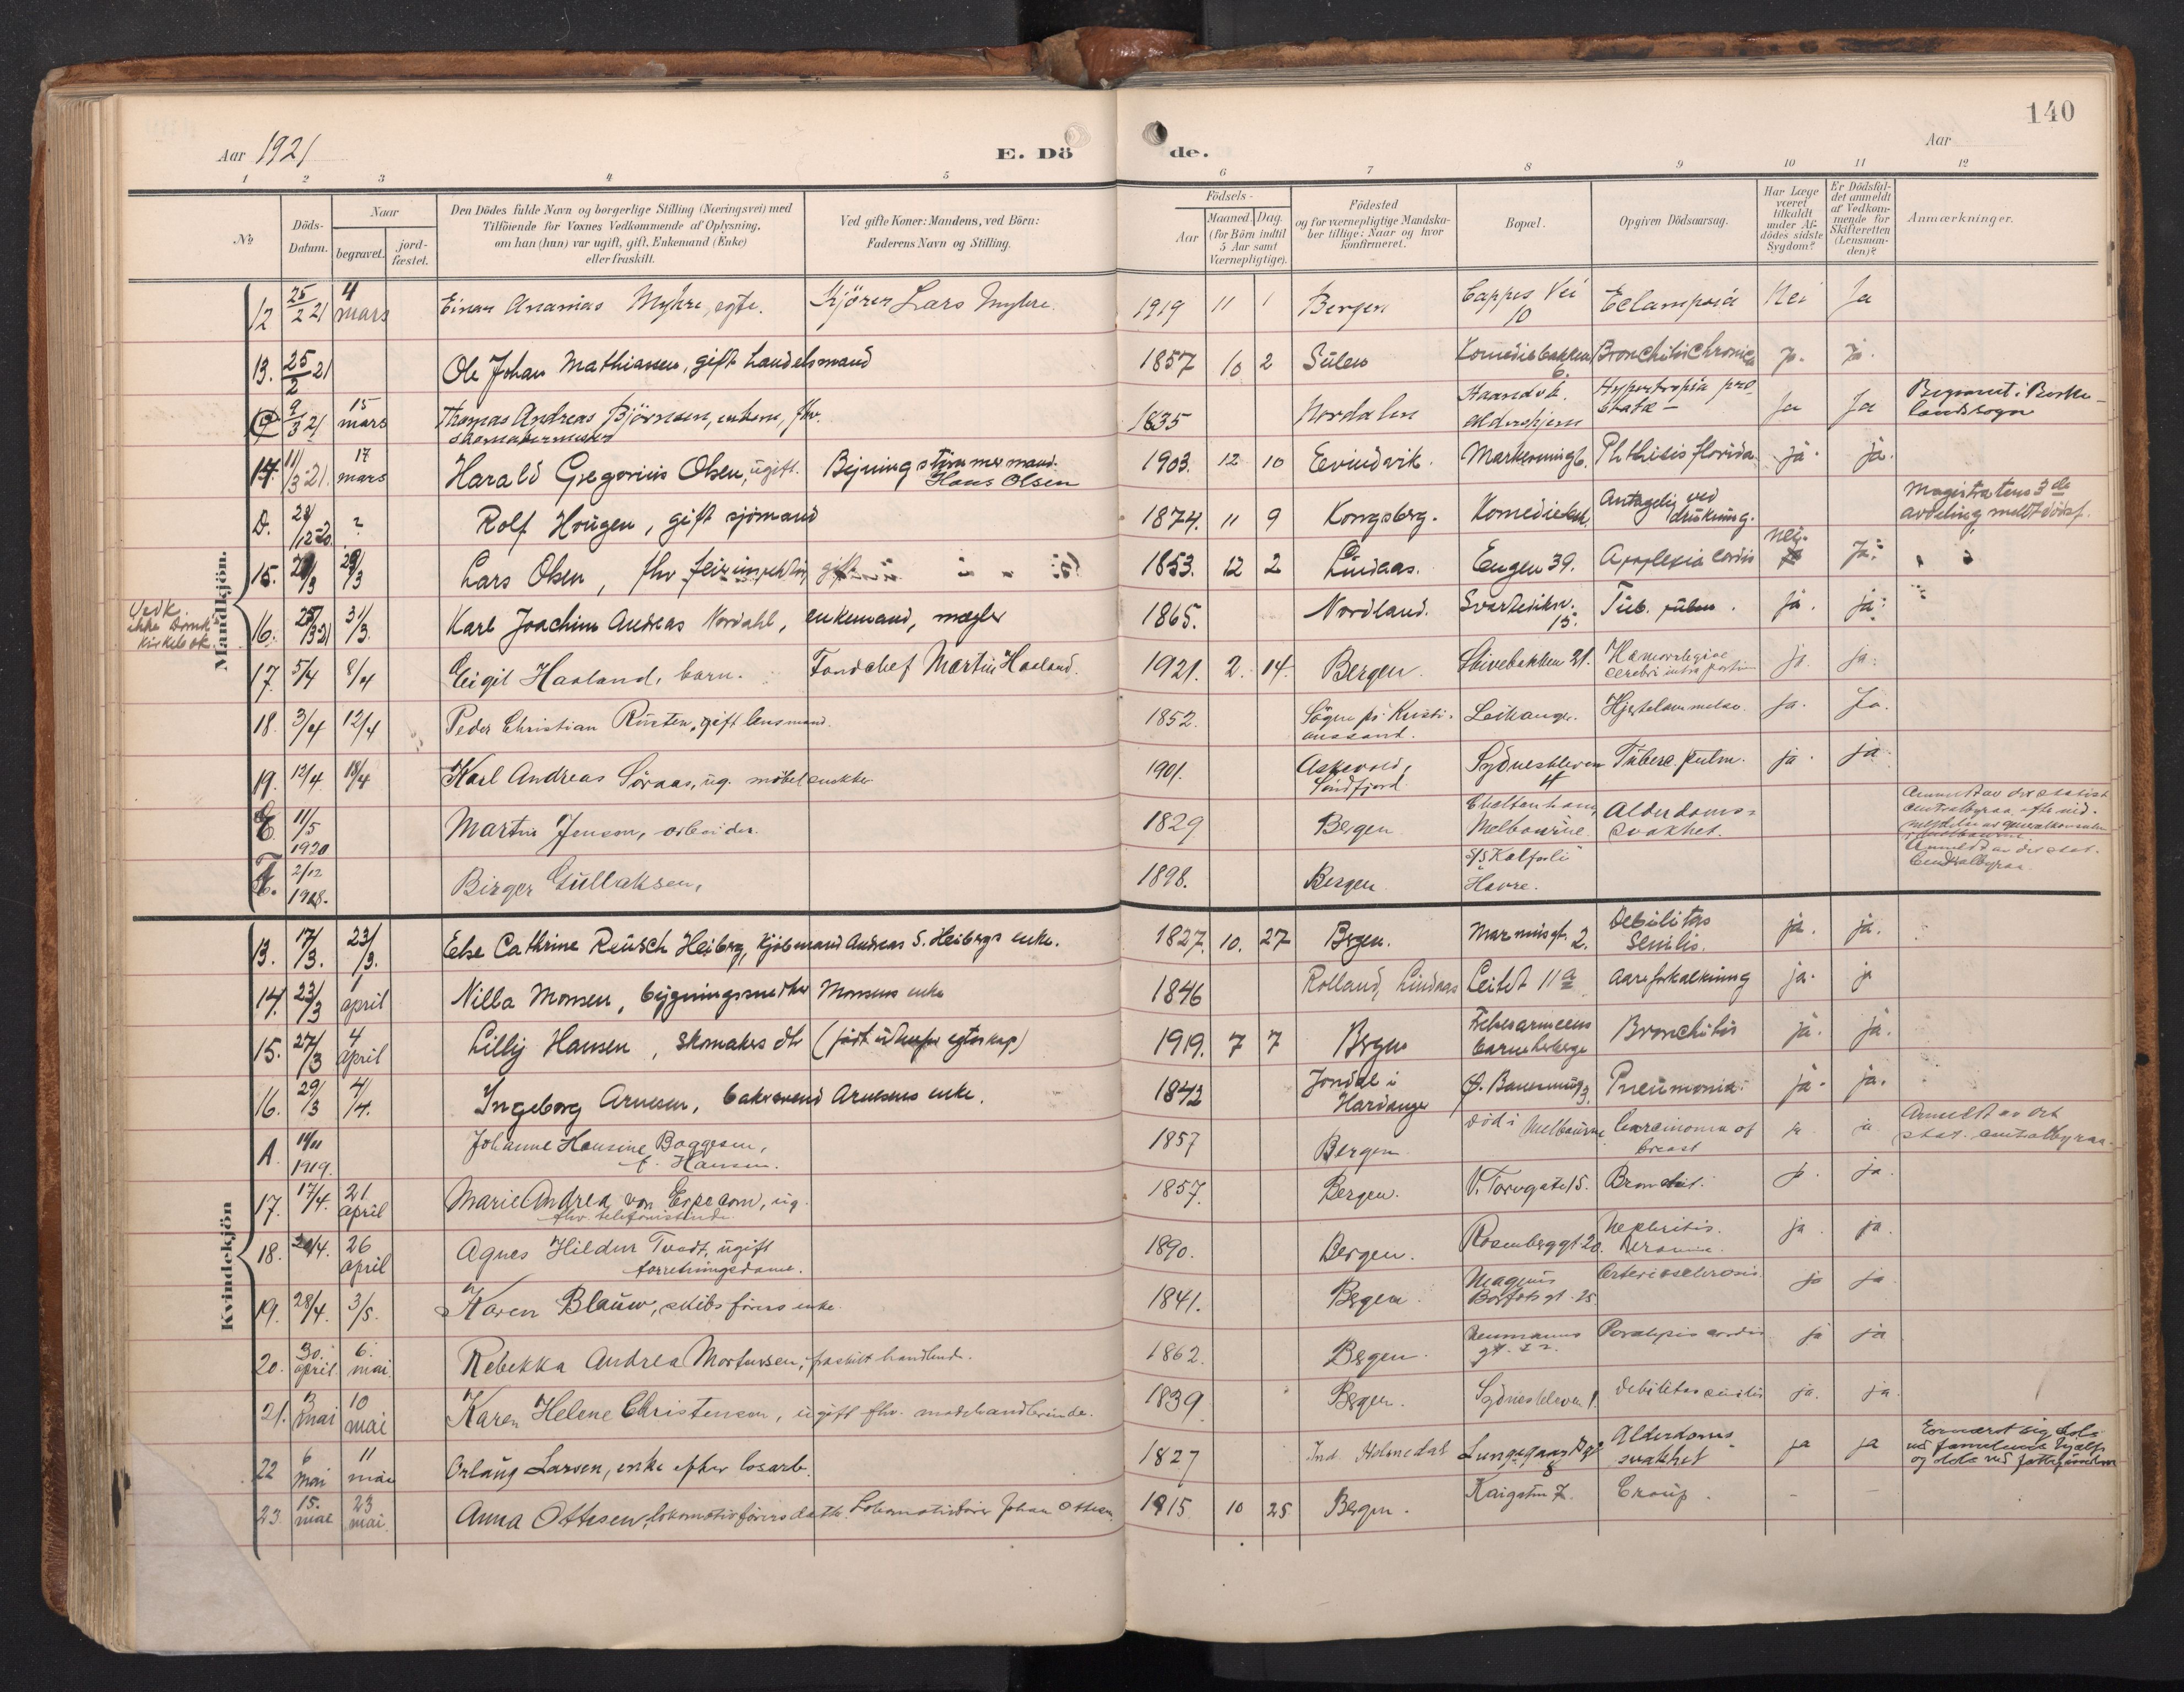 140
Aar 1921
E. Dö de.
Aar
1 2 3 4 5 6 7 8 9 10 11 12
No
Döds-
Datum.
Naar
begravet.
jord-
fæstet.
Den Dödes fulde Navn og borgerlige Stilling (Næringsvei) med
Tilföiende for Voxnes Vedkommende af Oplysning,
om han (hun) var ugift, gift, Enkemand (Enke)
eller fraskilt.
Ved gifte Koner: Mandens, ved Börn:
Faderens Navn og Stilling.
Födsels-
Aar
Maaned. Dag.
(for Börn indtil
5 Aar samt
Værnepligtige).
Födested
og for værnepligtige Mandska-
ber tillige: Naar og hvor
konfirmeret.
Bopæl.
Opgiven Dödsaarsag.
Har Læge
været
tilkaldt
under Af-
dödes sidste
Sygdom?
Er Dödsfal-
det anmeldt
af Vedkom-
mende for
Skifteretten
(Lensman-
den)?
Anmærkninger.
Mandkjön.
12 25/2 21 4 mars Einar Ananias Myhre, egte. Kjörer Lars Myhre. 1919 11 1 Bergen Cappes Vei 10 Eclampsia Nei Ja
13. 25/2 21 Ole Johan Mathiassen, gift handelsmand 1857 10 2 Sulen Komediebakken 6. Bronchitis chronica Ja. Ja.
9/3 21 15 mars Thomas Andreas Björnsen, enkem, fhv. skomakermester 1835 Nordalen Haandv. aldershjem Hypertrophia prostata - Ja Ja
14. 11/3 21. 17 mars Harald Gregorius Olsen, ugift. Bygningstömmermand. Hans Olsen 1903. 12 10 Evindvik. Phthisis florida ja. ja.
D. 28/12-20. ? Rolf Hougen, gift sjömand 1874. 11 9 Kongsberg. Antagelig ved drukning. Magistratens 3die avdeling meldt dödsf.
15. 29/3 Lars Olsen, fhv feierinspektör, gift 1853. 12 2 Lindaas. Engen 39. Apoplexia cordis nei. Ja.
Vedk.
ikke Domk.
kirkebok.
16. 31/3. Karl Joachim Andreas Nordahl, enkemand, mægler 1865. Nordland. Svartediksv. 15. Tub. pulm. ja. ja.
17. 5/4 8/4 Eigil Haaland, barn. Fondchef Martin Haaland. 1921. 2. 14. Bergen. Skivebakken 21. Hæmorrhagiae cerebri intra partum ja. ja.
18. 3/4 12/4 Peder Christian Rusten, gift lensmand. 1852. Sögne pr. Kristiansand. Leikanger. Hjertelammelse. Ja. Ja.
19. 12/4 18/4 Karl Andreas Söraas, ug. möbelsnekker 1901. Askevold, Söndfjord. Sydneskleven 4 Tuberc. pulm. ja. ja.
E 11/5 1920 Martin Jensen, arbeider. 1829 Bergen Cheltenham, Melbourne. Alderdomssvakhet.
F. 2/12 1918. Birger Gullaksen, 1898. Bergen S/S Kalfarli Havre. Anmeldt av det stat. Centralbyraa
Kvindekjön
13. 17/3. 23/3. Else Cathrine Reusch Heiberg, kjöbmand Andreas S. Heibergs enke. 1827. 10. 27 Bergen. Debilitas senilis. ja. ja.
14. 23/3 1 april Nilla Monsen, bygningssnedker Monsens enke 1846 Rolland, Lindaas Leitet 11a Aareforkalkning ja. ja
15. 27/3 4 april Lilly Hansen, skomakers dtr (födt utenfor egteskap) 1919. 7 7 Bergen Frelsesarmeens barneherberge Bronchitis ja. ja.
16. 29/3 4/4. Ingeborg Arnesen, bakersvend Arnesens enke. 1843 Jondal i Hardanger Pneumonia. ja. ja.
A 14/11 1919. Johanne Hansine Baggesen, f. Hansen. 1857 Bergen död i Melbourne Carcinoma of breast ja ja Anmeldt av det stat. centralbyraa.
17. 17/4. 21 april Marie Andrea von Erpecom, ug. fhv. telefonistinde. 1857. Bergen. V. Torvgate 15. Bronchit. ja. ja.
18. 26 april Agnes Hildur Tvedt, ugift forretningsdame. 1890. Bergen. Rosenberggt. 20. Nephritis. ja. ja.
19. 28/4. 3/5. Karen Blauw, skibsförers enke. 1841. Bergen. Magnus Barfots gt. 25. Arteriosclerosis ja ja
20. 30. april 6. mai. Rebekka Andrea Mortensen, fraskilt handlende. 1862. Bergen. Neumanns gt. 22. Paralysis cordis ja ja
21. 3 mai 10 mai Karen Helene Christensen, ugift fhv. motehandlerinde. 1839 Bergen. Sydneskleven 1. Debilitas senilis ja. ja.
22 6 mai 11 mai Orlaug Larsen, enke efter losarb. 1827 Ind. Holmedal Lungegaardsgt 8 Alderdomssvakhet ja ja
23. 15. mai 23 mai. Anna Ottesen, lokomotivförers datter. Lokomotivförer Johan Ottesen 1915 10 25 Bergen. Kaigaten 7. Croup. - -